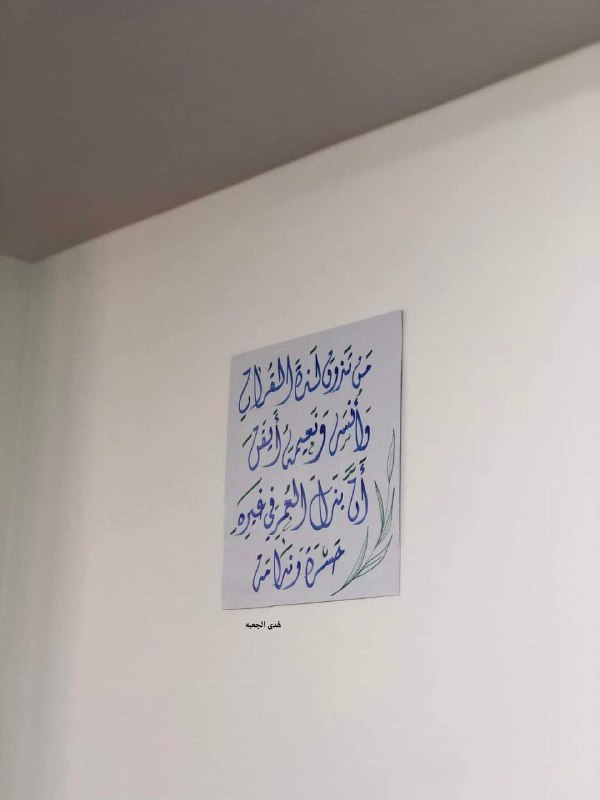 مَن تَذوقَ لَذةَ القُرآنِ
وَأُنسَه وَنَعيمَهُ أَيقَنَ
أَنَّ بَذلَ العُمرِ في غَيرِهِ
حَسْرَةٌ وَنَدَامَة
هدى الجعبه